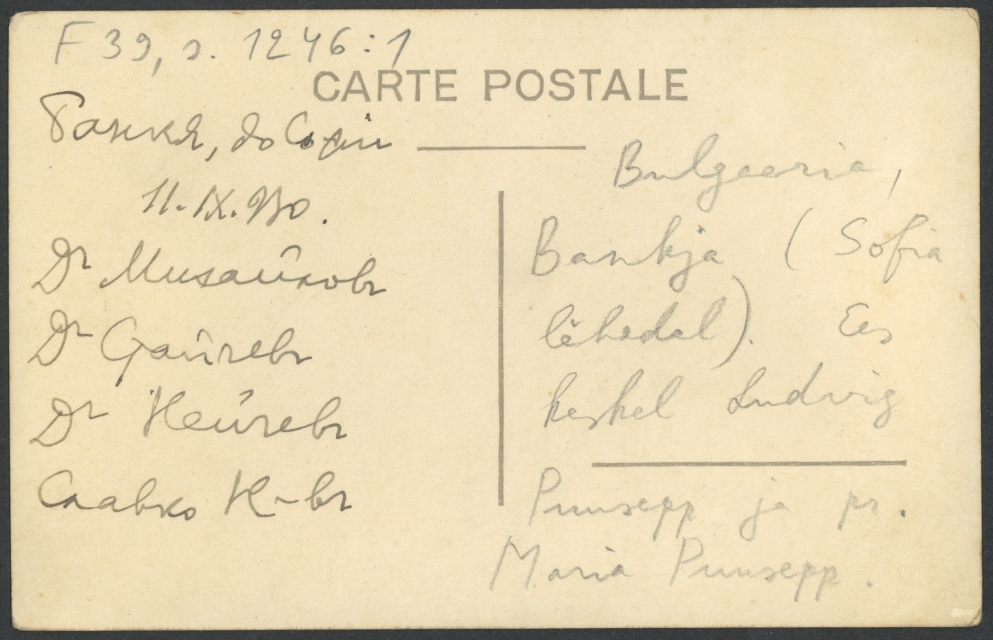 F 39, s. 1246:1
CARTE POSTALE
Банкя, до София
11.IX.930.
Dr Михайловъ
Dr
Dr Нейчевъ
Славко К-въ
Bulgaaria,
Bankja (Sofia
lähedal). Ees
keskel Ludvig
Puusepp ja pr.
Maria Puusepp.